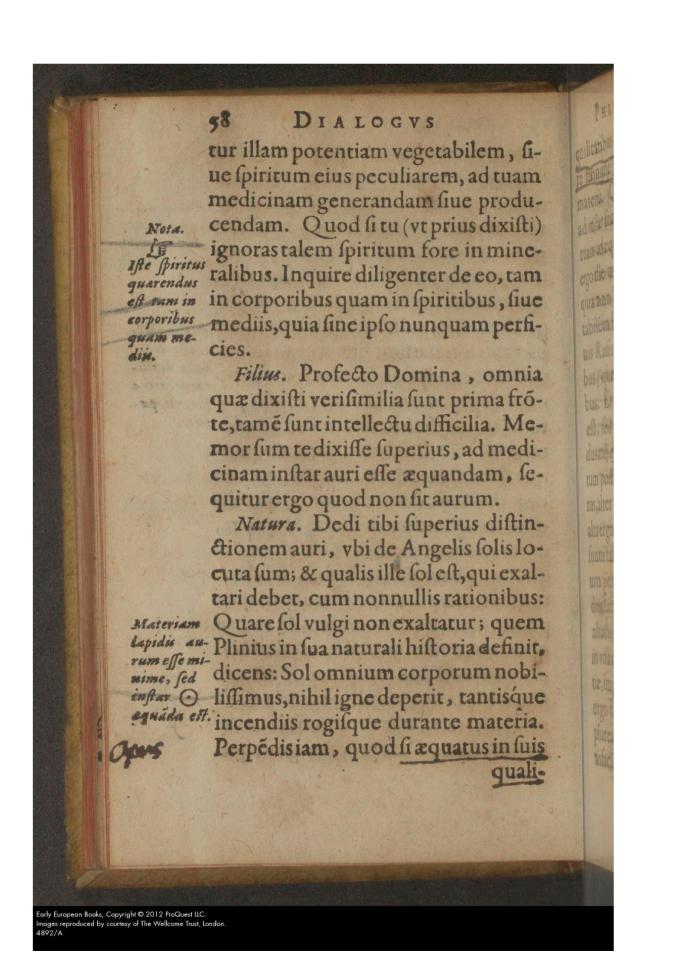 58 DIALOGVS
tur illam potentiam vegetabilem, ſi-
ue ſpiritum eius peculiarem, ad tuam
medicinam generandam ſiue produ-
cendam. Quod ſi tu (vt prius dixiſti)
ignoras talem ſpiritum fore in mine-
ralibus. Inquire diligenter de eo, tam
in corporibus quam in ſpiritibus, ſiue
mediis, quia ſine ipſo nunquam perfi-
cies.
Nota.
☞
Iſte ſpiritus
quærendus
eſt tam in
corporibus
quam me-
diis.
Filius. Profecto Domina, omnia
quæ dixiſti veriſimilia ſunt prima frō-
te, tamē ſunt intellectu difficilia. Me-
mor ſum te dixiſſe ſuperius, ad medi-
cinam inſtar auri eſſe æquandam, ſe-
quitur ergo quod non ſit aurum.
Natura. Dedi tibi ſuperius diſtin-
ctionem auri, vbi de Angelis ſolis lo-
cuta ſum; & qualis ille ſol eſt, qui exal-
tari debet, cum nonnullis rationibus:
Quare ſol vulgi non exaltatur; quem
Plinius in ſua naturali hiſtoria definit,
dicens: Sol omnium corporum nobi-
liſſimus, nihil igne deperit, tantisq́ue
incendiis rogiſque durante materia.
Perpēdis iam, quod ſi æquatus in ſuis
quali-
Materiam
lapidis au-
rum eſſe mi-
nime, ſed
inſtar ☉
æquāda eſt.
Opus
Early European Books, Copyright © 2012 ProQuest LLC.
Images reproduced by courtesy of The Wellcome Trust, London.
4892/A